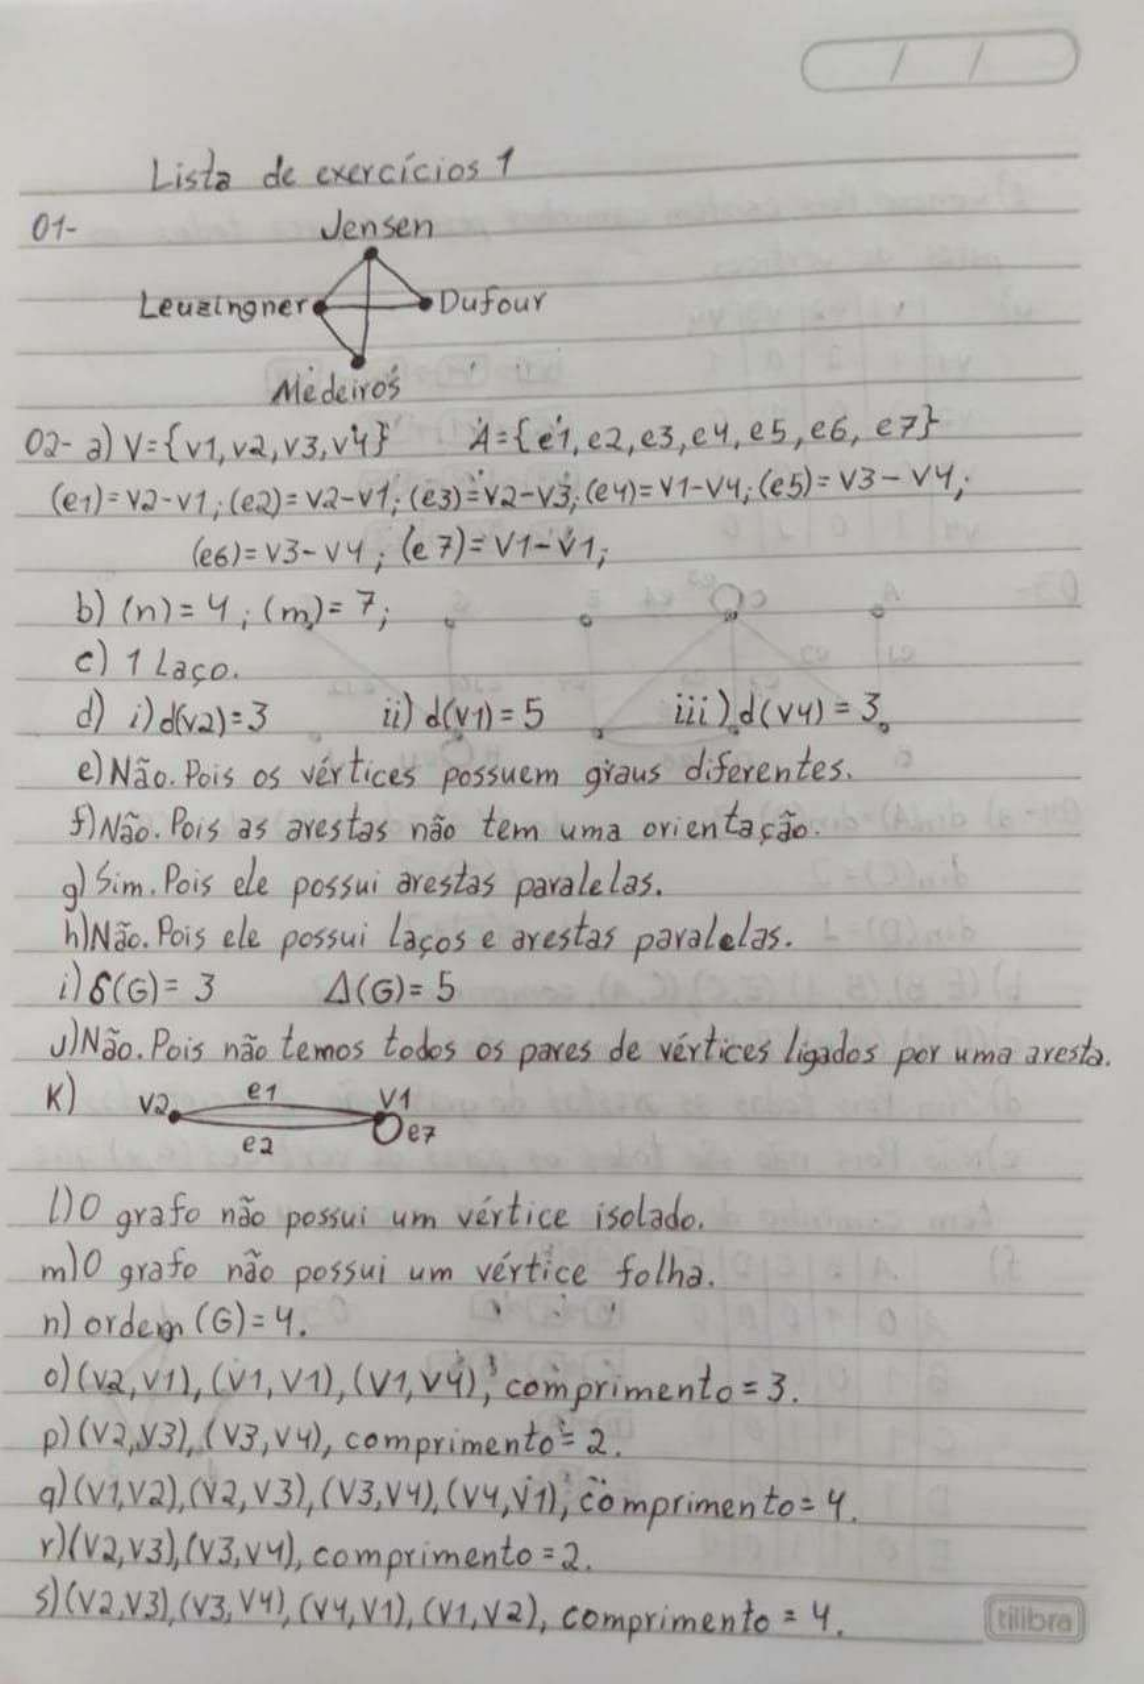 Lista de exercícios 1
01-
Jensen
Leuzingner Dufour
Medeiros
02- a) V={v1, v2, v3, v4} A={e1, e2, e3, e4, e5, e6, e7}
(e1)=v2-v1; (e2)=v2-v1; (e3)=v2-v3; (e4)=v1-v4; (e5)=v3-v4;
(e6)=v3-v4; (e7)=v1-v1;
b) (n)=4; (m)=7;
c) 1 Laço.
d) i) d(v2)=3 ii) d(v1)=5 iii) d(v4)=3
e) Não. Pois os vértices possuem graus diferentes.
f) Não. Pois as arestas não tem uma orientação.
g) Sim. Pois ele possui arestas paralelas.
h) Não. Pois ele possui laços e arestas paralelas.
i) δ(G)= 3 Δ(G)= 5
J) Não. Pois não temos todos os pares de vértices ligados por uma aresta.
K) v2 e1 v1
e2 e7
l) O grafo não possui um vértice isolado.
m) O grafo não possui um vértice folha.
n) ordem (G)=4.
o) (v2,v1), (v1,v1), (v1,v4), comprimento=3.
p) (v2,v3), (v3,v4), comprimento=2.
q) (v1,v2), (v2,v3), (v3,v4), (v4,v1), comprimento=4.
r) (v2,v3), (v3,v4), comprimento=2.
s) (v2,v3), (v3,v4), (v4,v1), (v1,v2), comprimento=4.
tilibra